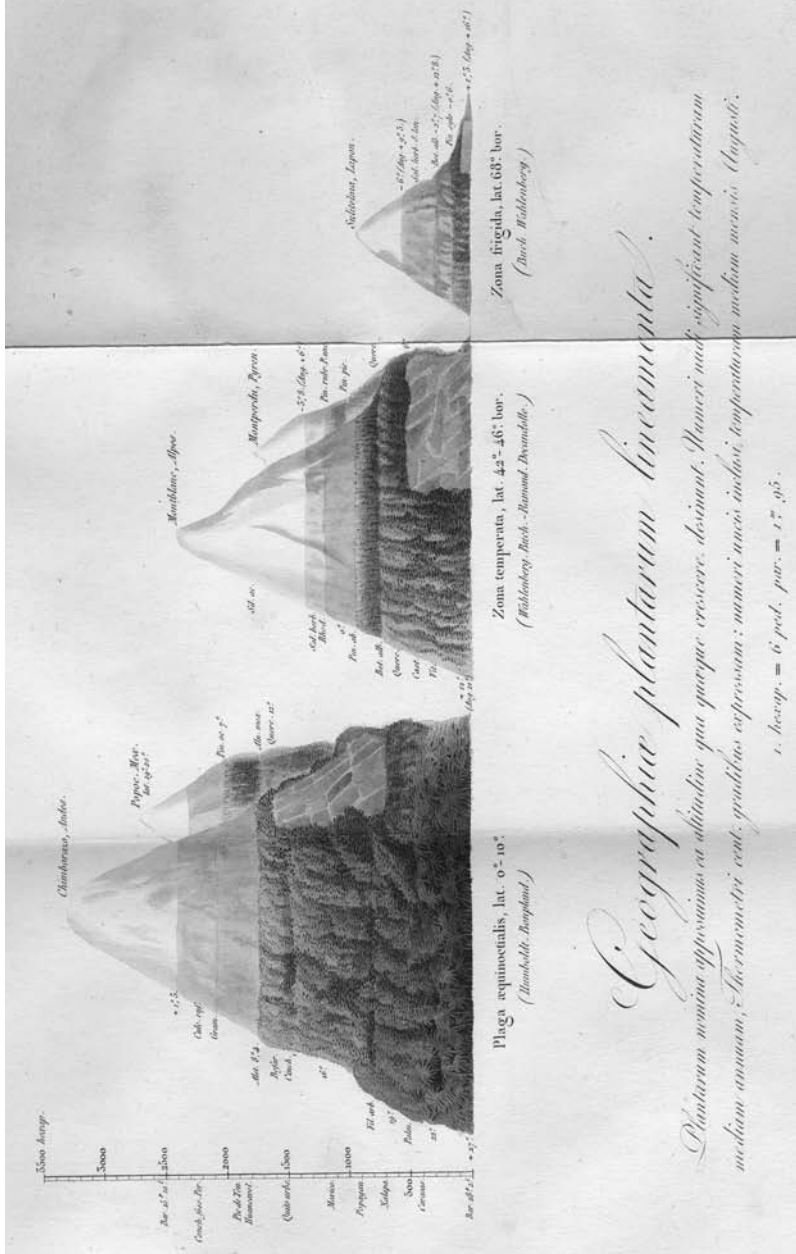 3500 hexap.
3000
2500
2000
1500
1000
500
Bar. 15° 11¹
Conch. foss. Per.
Pic de Ten.
Huancavel.
Quito urbs.
Mexico.
Popayan.
Xalapa.
Caracas.
Bar. 28° 2¹
Chimborazo, Andes.
Popoc. Mex.
lat. 19°-20°
+ 1°, 5.
Culc. 197
Gram.
Alst. 8° 4.
Befar.
Cinch.
16°
Fil. arb.
19°
Palm.
22°
+ 27°
Pin. oc. 7°
Aln. mex.
Querc. 12°
Plaga æquinoctialis, lat. 0°- 10°.
(Humboldt. Bonpland.)
Montblanc, Alpes.
Montperdu, Pyren.
Sil. ac.
Sal. herb.
Rhod.
0°
Pin. ab.
Bet. alb.
Querc.
Cast.
Vit.
+ 12°
-3°, 8. (Aug. + 6°)
Pin. rubr.
Pin. pic.
Querc.
Zona temperata, lat. 42°- 46° bor.
(Wahlenberg. Buch.-Ramond. Decandolle.)
Sulitelma, Lapon.
-6° (Aug. + 9°, 5.)
Sal. herb.
Bet. alb.
+ 1°, 5. (Aug. + 16°)
Zona frigida, lat. 68° bor.
(Buch. Wahlenberg.)
Geographiæ plantarum lineamenta.
Plantarum nomina apposuimus ea altitudine qua quæque crescere desinunt. Numeri nudi significant temperaturam
mediam annuam, Thermometri cent. gradibus expressam: numeri uncis inclusi, temperaturam mediam mensis Augusti.
1. hexap. = 6 ped. par. = 1.ᵐ 95.